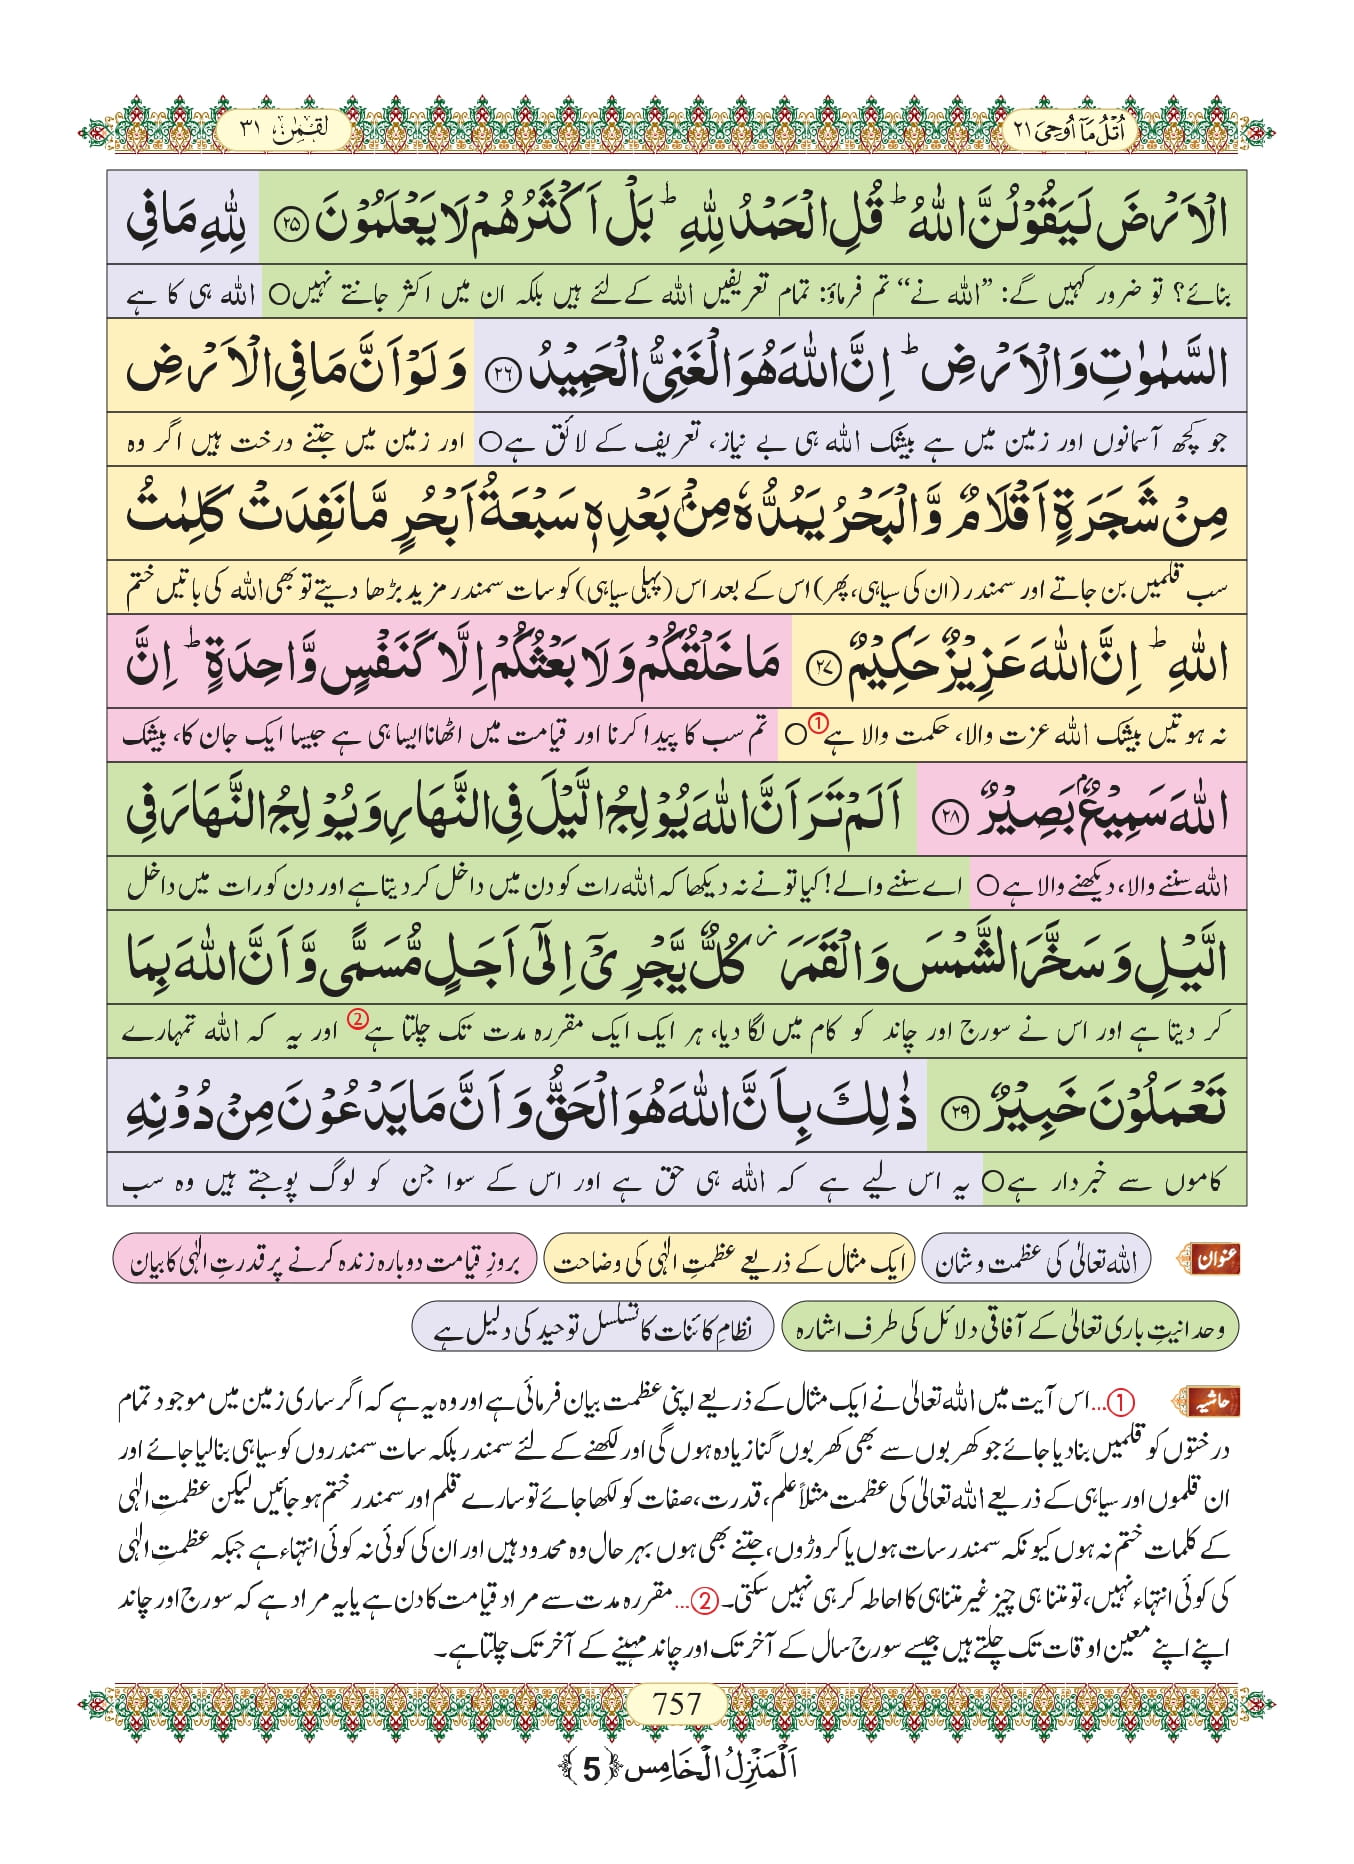 اُتْلُ مَاۤ اُوْحِیَ ۲۱
لُقْمٰنُ ۳۱
الْاَرْضَ لَیَقُوْلُنَّ اللّٰهُؕ قُلِ الْحَمْدُ لِلّٰهِؕ بَلْ اَكْثَرُهُمْ لَا یَعْلَمُوْنَ ﴿۲۵﴾ لِلّٰهِ مَا فِی
بنائے؟ تو ضرور کہیں گے: ”اللہ نے“ تم فرماؤ: تمام تعریفیں اللہ کے لئے ہیں بلکہ ان میں اکثر جانتے نہیں○ اللہ ہی کا ہے
السَّمٰوٰتِ وَ الْاَرْضِؕ اِنَّ اللّٰهَ هُوَ الْغَنِیُّ الْحَمِیْدُ ﴿۲۶﴾ وَ لَوْ اَنَّ مَا فِی الْاَرْضِ
جو کچھ آسمانوں اور زمین میں ہے بیشک اللہ ہی بے نیاز، تعریف کے لائق ہے○ اور زمین میں جتنے درخت ہیں اگر وہ
مِنْ شَجَرَةٍ اَقْلَامٌ وَّ الْبَحْرُ یَمُدُّهٗ مِنْۢ بَعْدِهٖ سَبْعَةُ اَبْحُرٍ مَّا نَفِدَتْ كَلِمٰتُ
سب قلمیں بن جاتے اور سمندر (ان کی سیاہی، پھر) اس کے بعد اس (پہلی سیاہی) کو سات سمندر مزید بڑھا دیتے تو بھی اللہ کی باتیں ختم
اللّٰهِؕ اِنَّ اللّٰهَ عَزِیْزٌ حَكِیْمٌ ﴿۲۷﴾ مَا خَلْقُكُمْ وَ لَا بَعْثُكُمْ اِلَّا كَنَفْسٍ وَّاحِدَةٍؕ اِنَّ
نہ ہوتیں بیشک اللہ عزت والا، حکمت والا ہے①○ تم سب کا پیدا کرنا اور قیامت میں اٹھانا ایسا ہی ہے جیسا ایک جان کا، بیشک
اللّٰهَ سَمِیْعٌۢ بَصِیْرٌ ﴿۲۸﴾ اَلَمْ تَرَ اَنَّ اللّٰهَ یُوْلِجُ الَّیْلَ فِی النَّهَارِ وَ یُوْلِجُ النَّهَارَ فِی
اللہ سننے والا، دیکھنے والا ہے○ اے سننے والے! کیا تو نے نہ دیکھا کہ اللہ رات کو دن میں داخل کر دیتا ہے اور دن کو رات میں داخل
الَّیْلِ وَ سَخَّرَ الشَّمْسَ وَ الْقَمَرَ٘ كُلٌّ یَّجْرِیْۤ اِلٰۤى اَجَلٍ مُّسَمًّى وَّ اَنَّ اللّٰهَ بِمَا
کر دیتا ہے اور اس نے سورج اور چاند کو کام میں لگا دیا، ہر ایک ایک مقررہ مدت تک چلتا ہے② اور یہ کہ اللہ تمہارے
تَعْمَلُوْنَ خَبِیْرٌ ﴿۲۹﴾ ذٰلِكَ بِاَنَّ اللّٰهَ هُوَ الْحَقُّ وَ اَنَّ مَا یَدْعُوْنَ مِنْ دُوْنِهِ
کاموں سے خبردار ہے○ یہ اس لیے ہے کہ اللہ ہی حق ہے اور اس کے سوا جن کو لوگ پوجتے ہیں وہ سب
عنوان اللہ تعالیٰ کی عظمت و شان ایک مثال کے ذریعے عظمتِ الٰہی کی وضاحت بروزِ قیامت دوبارہ زندہ کرنے پر قدرتِ الٰہی کا بیان
وحدانیتِ باری تعالیٰ کے آفاقی دلائل کی طرف اشارہ نظامِ کائنات کا تسلسل توحید کی دلیل ہے
حاشیہ ①...اس آیت میں اللہ تعالیٰ نے ایک مثال کے ذریعے اپنی عظمت بیان فرمائی ہے اور وہ یہ ہے کہ اگر ساری زمین میں موجود تمام
درختوں کو قلمیں بنا دیا جائے جو کھربوں سے بھی کھربوں گنا زیادہ ہوں گی اور لکھنے کے لئے سمندر بلکہ سات سمندروں کو سیاہی بنا لیا جائے اور
ان قلموں اور سیاہی کے ذریعے اللہ تعالیٰ کی عظمت مثلاً علم، قدرت، صفات کو لکھا جائے تو سارے قلم اور سمندر ختم ہو جائیں لیکن عظمتِ الٰہی
کے کلمات ختم نہ ہوں کیونکہ سمندر سات ہوں یا کروڑوں، جتنے بھی ہوں بہر حال وہ محدود ہیں اور ان کی کوئی نہ کوئی انتہاء ہے جبکہ عظمتِ الٰہی
کی کوئی انتہاء نہیں، تو متناہی چیز غیر متناہی کا احاطہ کر ہی نہیں سکتی۔ ②...مقررہ مدت سے مراد قیامت کا دن ہے یا یہ مراد ہے کہ سورج اور چاند
اپنے اپنے معین اوقات تک چلتے ہیں جیسے سورج سال کے آخر تک اور چاند مہینے کے آخر تک چلتا ہے۔
757
اَلْمَنْزِلُ الْخَامِس ﴿5﴾